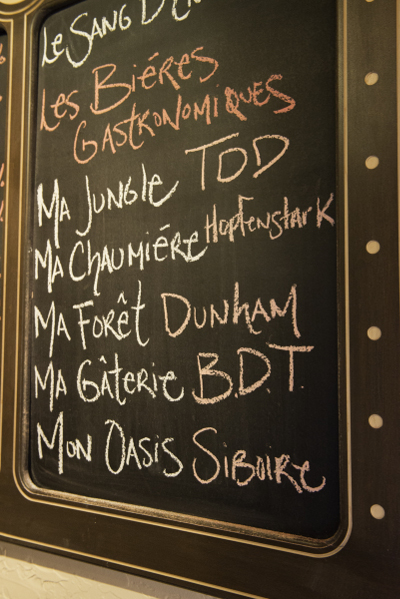 Le Sang
Les Biéres
Gastronomiques
Ma Jungle TOD
Ma Chaumiére Hopfenstark
Ma Forêt Dunham
Ma Gâterie B.D.T.
Mon Oasis Siboire